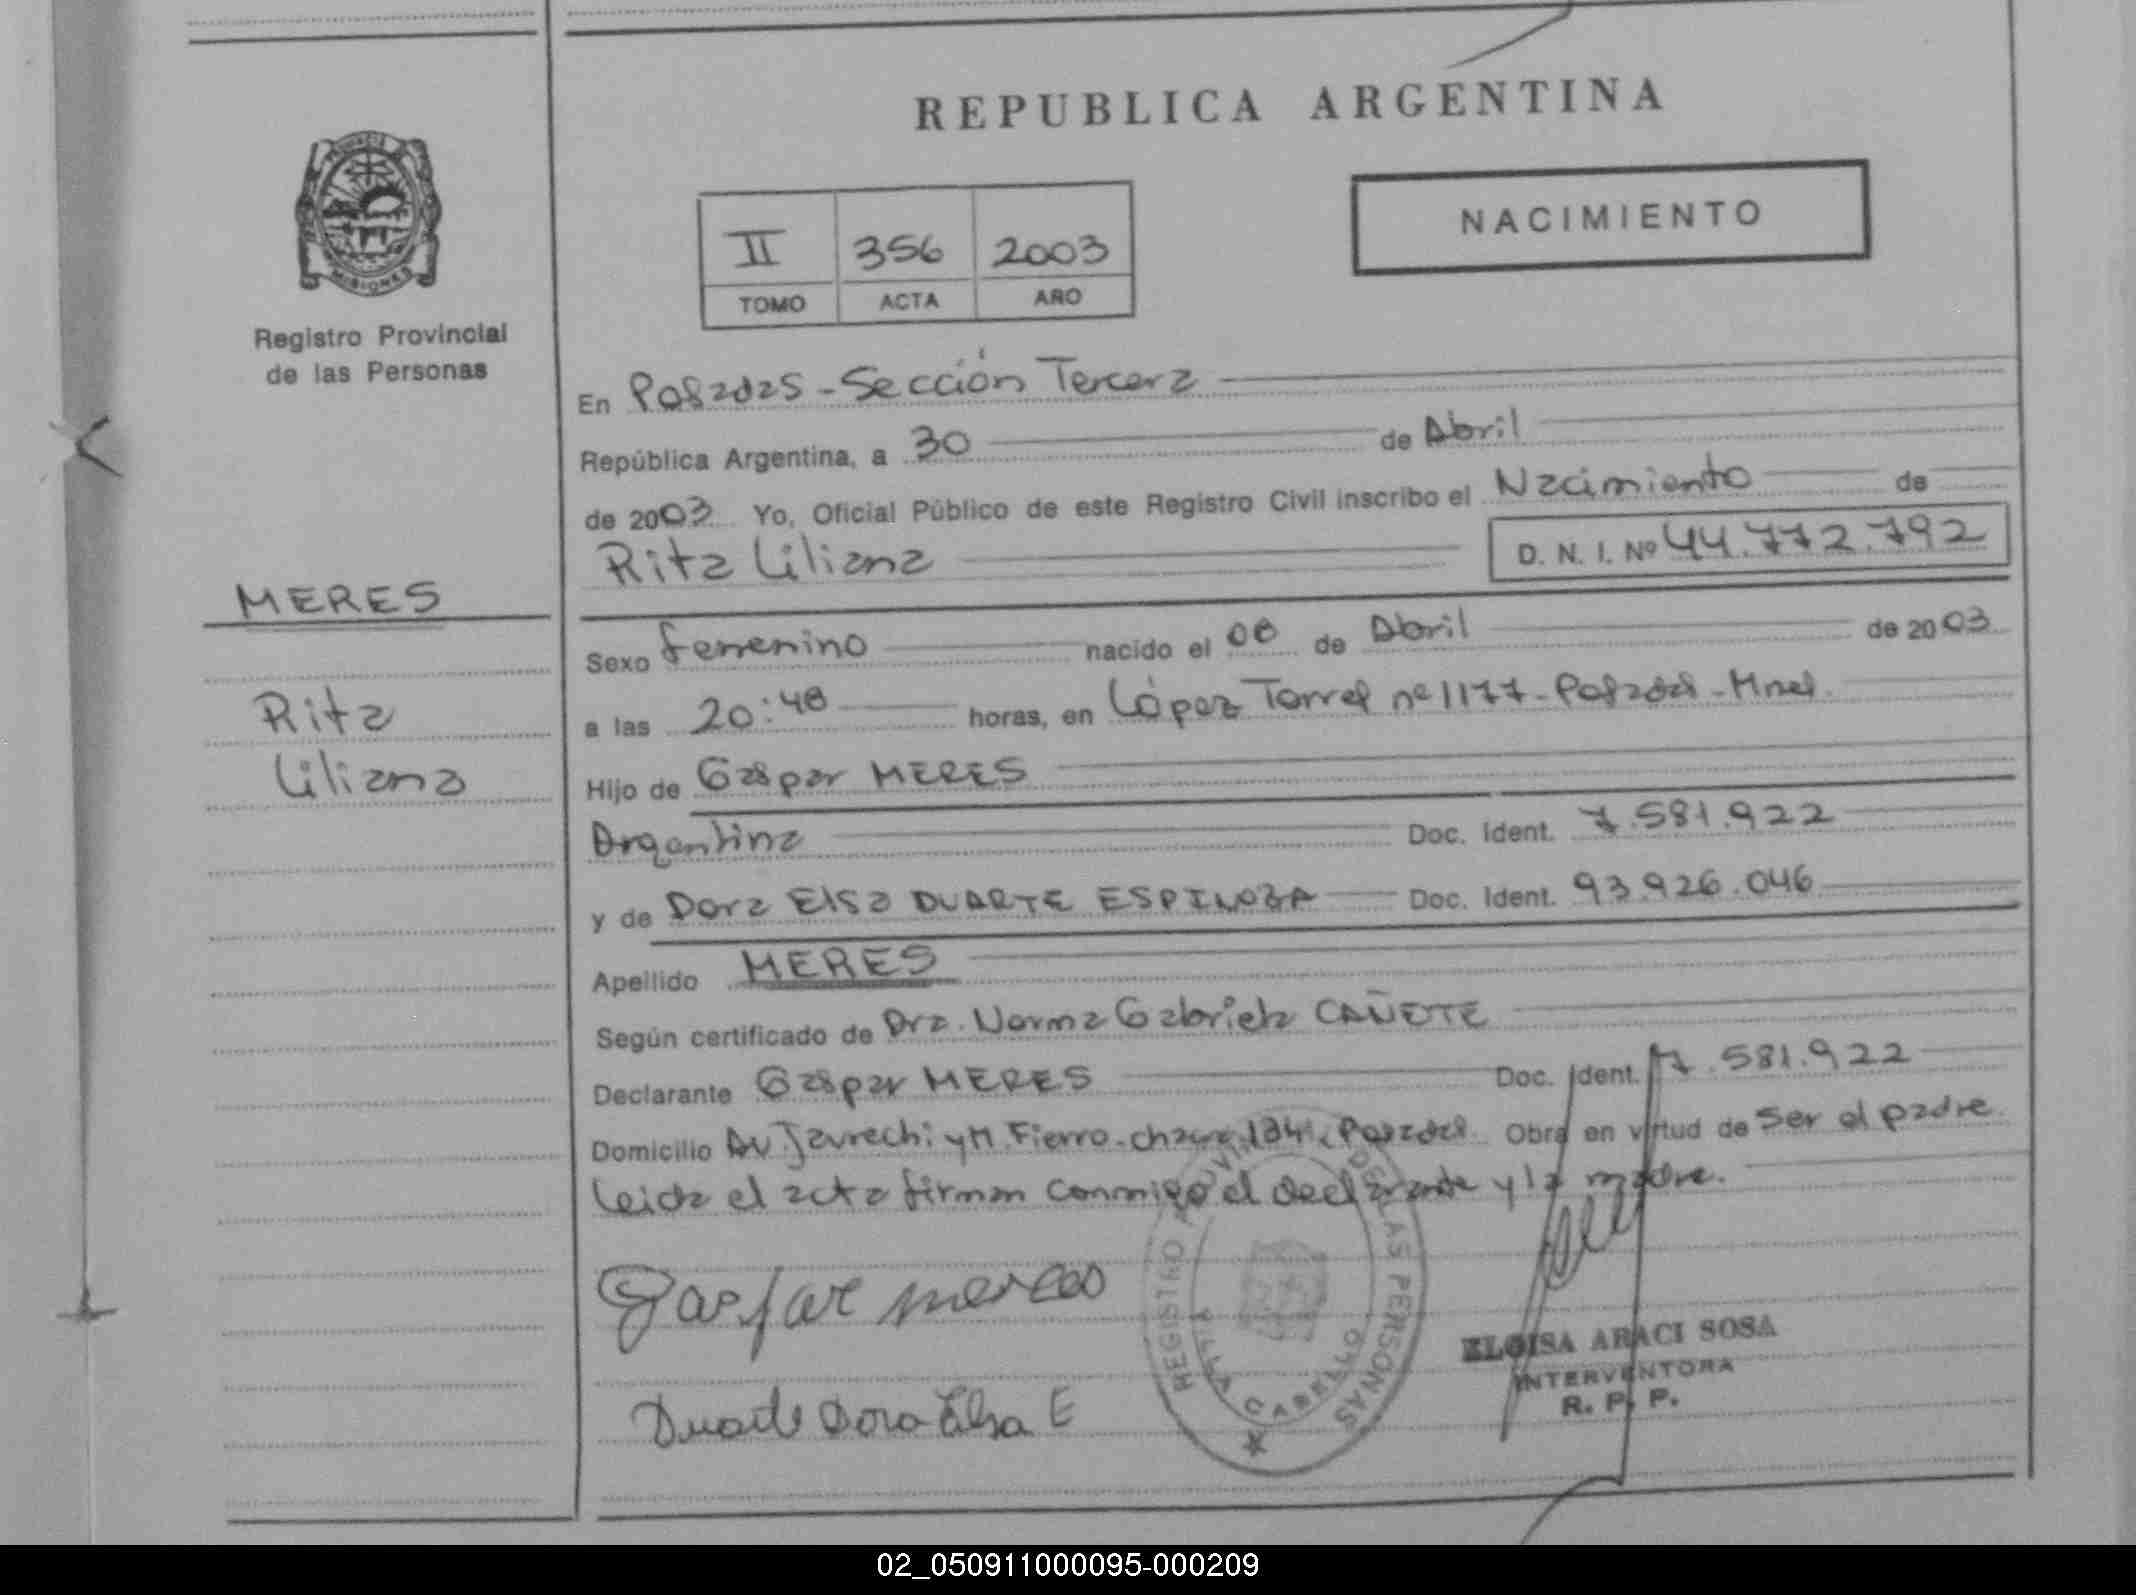 REPUBLICA ARGENTINA
PROVINCIA
MISIONES
Registro Provincial
de las Personas
NACIMIENTO
II 356 2003
TOMO ACTA AÑO
En Posadas - Sección Tercera
República Argentina, a 30 de Abril
de 2003 Yo, Oficial Público de este Registro Civil inscribo el Nacimiento de
Rita Liliana D. N. I. Nº 44.772.792
MERES
Rita
Liliana
Sexo femenino nacido el 08 de Abril de 2003
a las 20:48 horas, en López Torres nº 1177 - Posadas - Mnes.
Hijo de Gaspar MERES
Argentina Doc. Ident. 7.581.922
y de Dora Elsa DUARTE ESPINOZA Doc. Ident. 93.926.046
Apellido MERES
Según certificado de Dra. Norma Gabriela CAÑETE
Declarante Gaspar MERES Doc. Ident. 7.581.922
Domicilio Av Jauretche y M. Fierro - chacra Posadas Obra en virtud de ser el padre.
Leida el acta firman conmigo el declarante y la madre.
Gaspar meres
Duarte Dora Elsa E
REGISTRO PROVINCIAL DE LAS PERSONAS
VILLA CABELLO
ELOISA ARACI SOSA
INTERVENTORA
R. P. P.
02_050911000095-000209